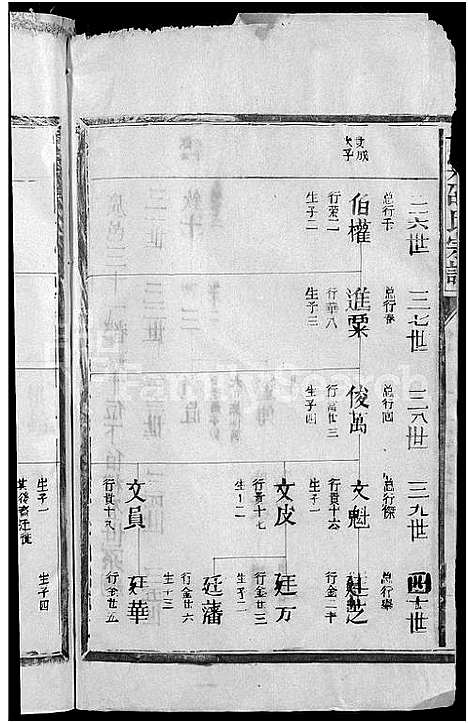 邵氏宗譜
三六世
總行千
三七世
總行春
三八世
總行四
三九世
總行傑
四十世
總行舉
次子
伯權
行榮二
生子二
進粟
行華八
生子三
俊萬
行萬廿三
生子四
文魁
行貫十六
生子一
廷芝
行金二十
文皮
行貫十七
生子二
廷万
行金廿三
生子二
廷藩
行金廿六
生子三
文員
行貫十九
生子一
廷華
行金廿五
生子四
FamilySearch